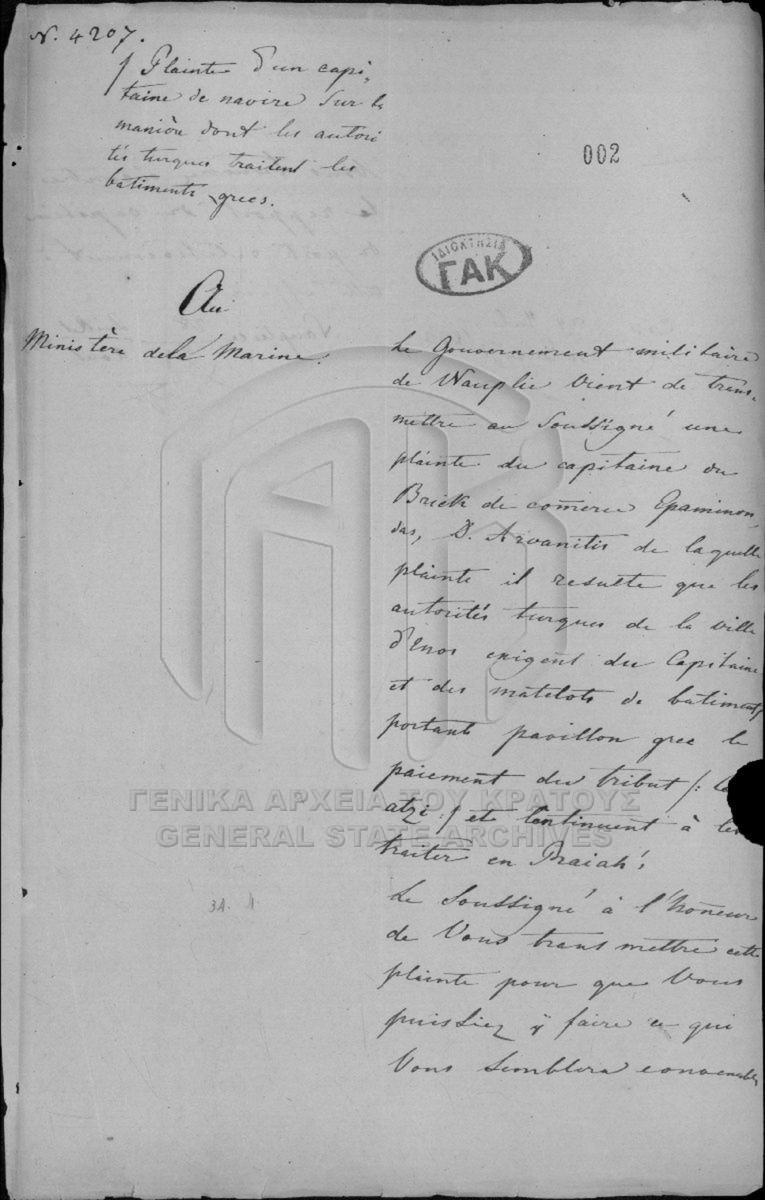 N. 4207.
/ Plainte d'un capi-
taine de navire sur la
manière dont les autori
tés turques traitent les
batiments grecs.
002
ΙΔΙΟΚΤΗΣΙΑ
ΓΑΚ
Au
Ministère de la Marine.
Le Gouvernement militaire
de Nauplie vient de trans-
mettre au Soussigné une
plainte du capitaine du
Brick de comerce Epaminon,
das, D. Arvanitis de laquelle
plainte il resulte que les
autorités turques de la ville
d'Enos exigent du Capitaine
et des matelots de batiments
portants pavillon grec le
paiement du tribut /:
atzi :/ et continuent à les
traiter en Raiah!
Le Soussigné à l'honeur
de Vous transmettre cette
plainte pour que Vous
puissiez y faire ce qui
Vous semblera convenable
ΓΕΝΙΚΑ ΑΡΧΕΙΑ ΤΟΥ ΚΡΑΤΟΥΣ
GENERAL STATE ARCHIVES